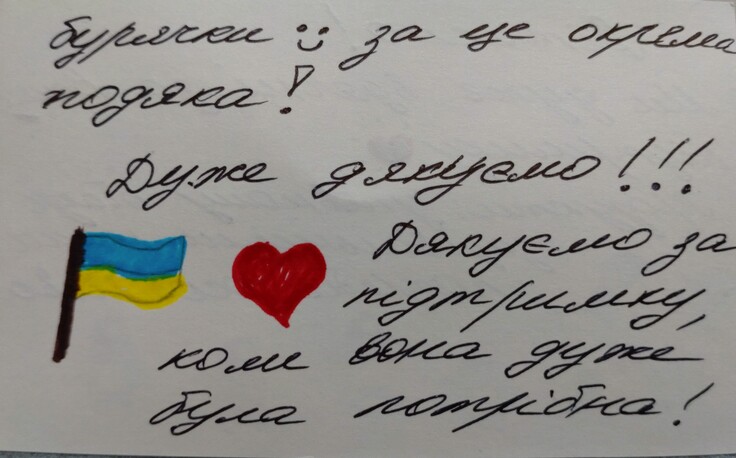 бурячки :) за це окрема
подяка!
Дуже дякуємо!!!
Дякуємо за
підтримку,
коли вона дуже
була потрібна!